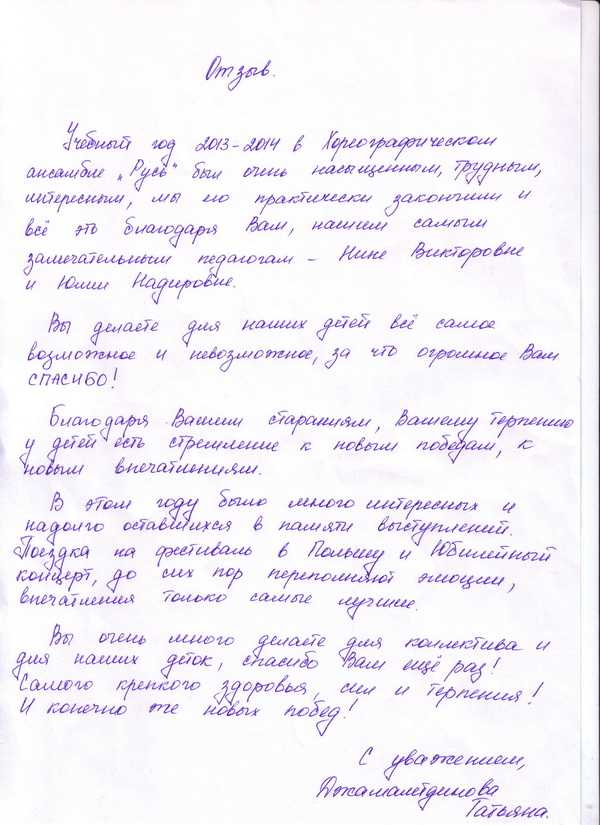 Отзыв.
Учебный год 2013-2014 в Хореографическом
ансамбле „Русь" был очень насыщенным, трудным,
интересным, мы его практически закончили и
всё это благодаря Вам, нашим самым
замечательным педагогам – Нине Викторовне
и Юлии Надировне.
Вы делаете для наших детей всё самое
возможное и невозможное, за что огромное Вам
СПАСИБО!
Благодаря Вашим стараниям, Вашему терпению
у детей есть стремление к новым победам, к
новым впечатлениям.
В этом году было много интересных и
надолго оставшихся в памяти выступлений.
Поездка на фестиваль в Польшу и Юбилейный
концерт, до сих пор переполняют эмоции,
впечатления только самые лучшие.
Вы очень много делаете для коллектива и
для наших деток, спасибо Вам ещё раз!
Самого крепкого здоровья, сил и терпения!
И конечно же новых побед!
С уважением,
Джамалетдинова
Татьяна.